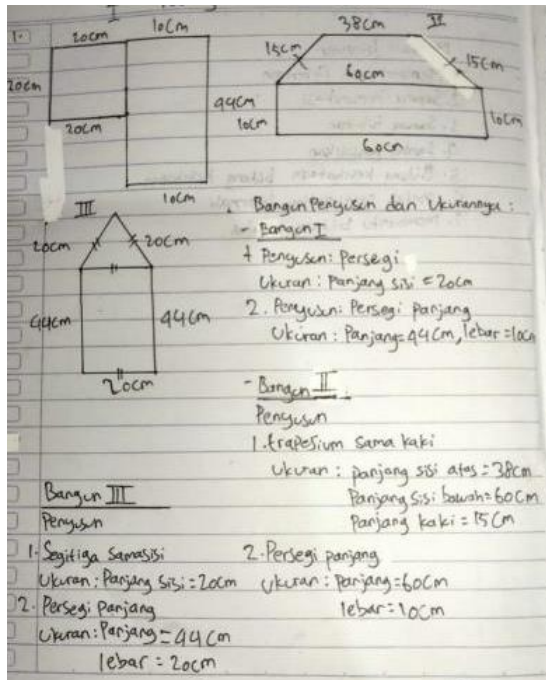 I
1.
20cm
10cm
20cm
20cm
44cm
10cm
II
38cm
15cm
15cm
60cm
10cm
10cm
60cm
III
20cm
20cm
44cm
44cm
20cm
Bangun Penyusun dan Ukurannya :
- Bangun I
1 Penyusun: Persegi
Ukuran : Panjang sisi = 20cm
2. Penyusun: Persegi panjang
Ukuran : Panjang=44cm, lebar=10cm
- Bangun II
Penyusun
1. trapesium sama kaki
Ukuran : panjang sisi atas=38cm
Panjang sisi bawah=60cm
Panjang kaki = 15cm
2. Persegi panjang
Ukuran : panjang=60cm
lebar=10cm
Bangun III
Penyusun
1. Segitiga samasisi
Ukuran: Panjang sisi=20cm
2. Persegi panjang
Ukuran: Panjang=44cm
lebar = 20cm